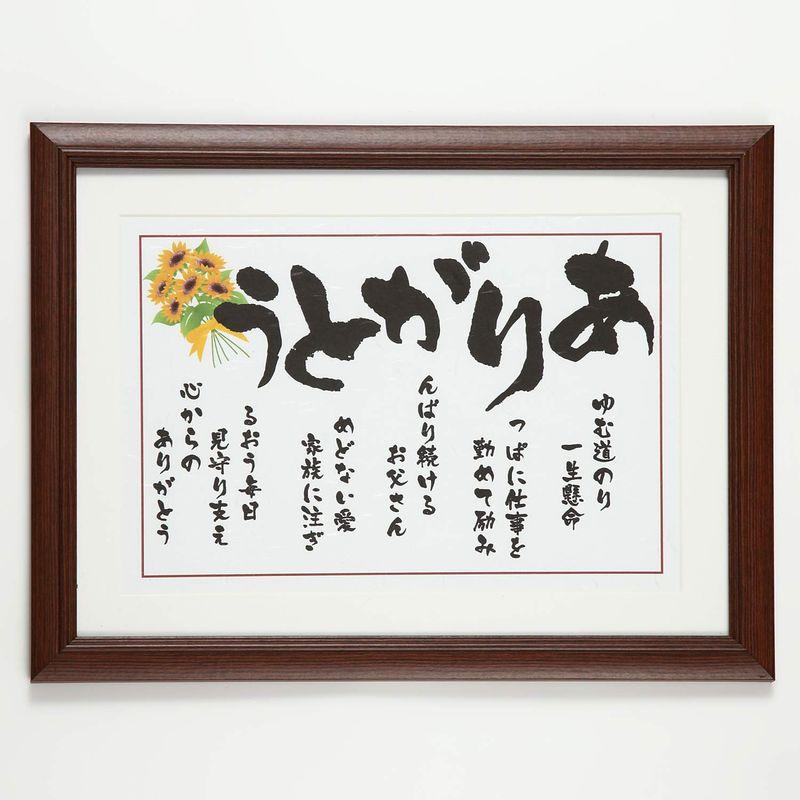 ありがとう
ゆむ道のり
一生懸命
つぱに仕事を
勤めて励み
んばり続ける
お父さん
めどない愛
家族に注ぎ
るおう毎日
見守り支え
心からの
ありがとう